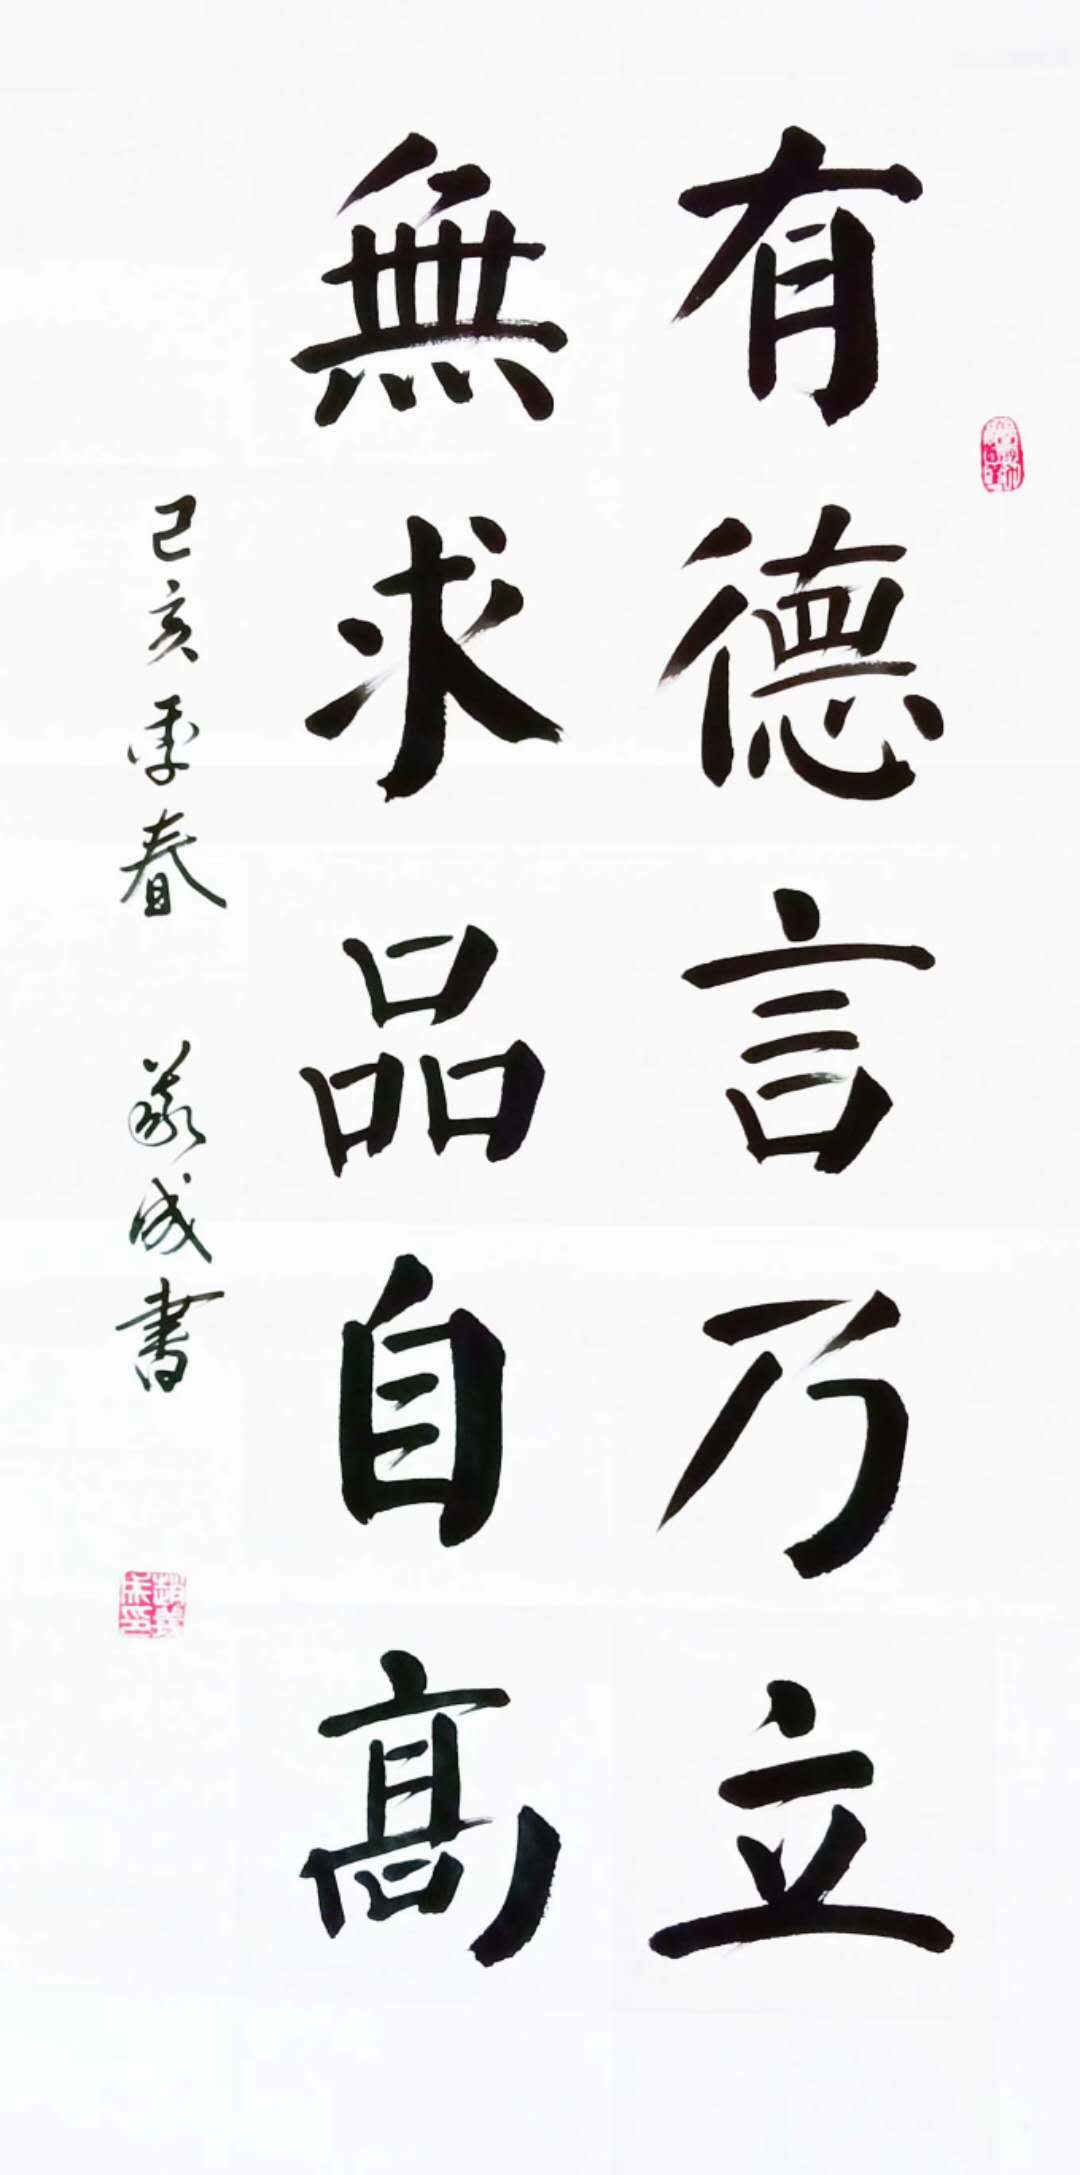 有德言乃立
無求品自高
己亥季春 義成書